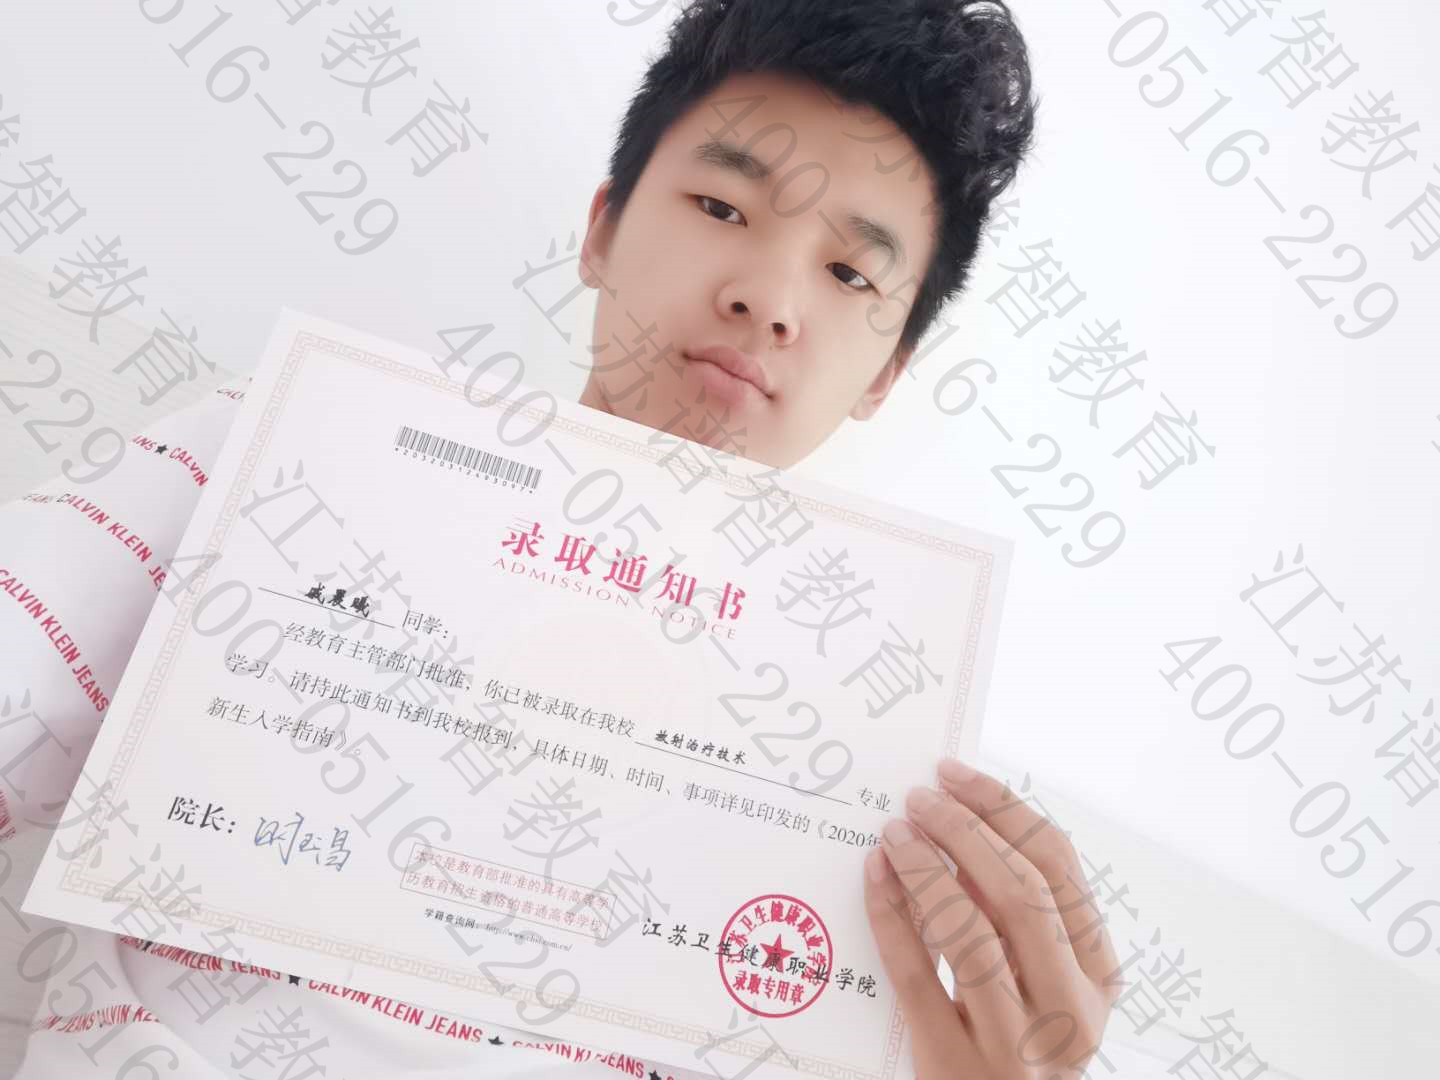 *20320312493097*
录取通知书
ADMISSION NOTICE
戚晨曦 同学：
经教育主管部门批准，你已被录取在我校 放射治疗技术 专业
学习。请持此通知书到我校报到，具体日期、时间、事项详见印发的《2020年
新生入学指南》。
院长：
本校是教育部批准的具有高等学
历教育招生资格的普通高等学校
学籍查询网：http://www.chsi.com.cn/
江苏卫生健康职业学院
江苏卫生健康职业学院
录取专用章
CALVIN KLEIN JEANS
CALVIN KLEIN JEANS
CALVIN KLEIN JEANS
江苏谱智教育
400-0516-229